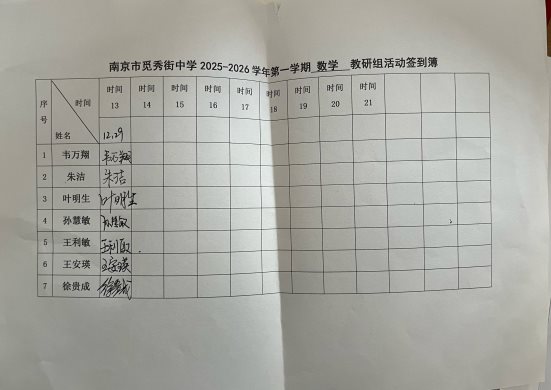 南京市觅秀街中学 2025-2026 学年第一学期 数学 教研组活动签到簿
序号 时间 姓名 时间13 时间14 时间15 时间16 时间17 时间18 时间19 时间20 时间21
12.29
1 韦万翔 韦万翔
2 朱洁 朱洁
3 叶明生 叶明生
4 孙慧敏 孙慧敏
5 王利敏 王利敏
6 王安瑛 王安瑛
7 徐贵成 徐贵成